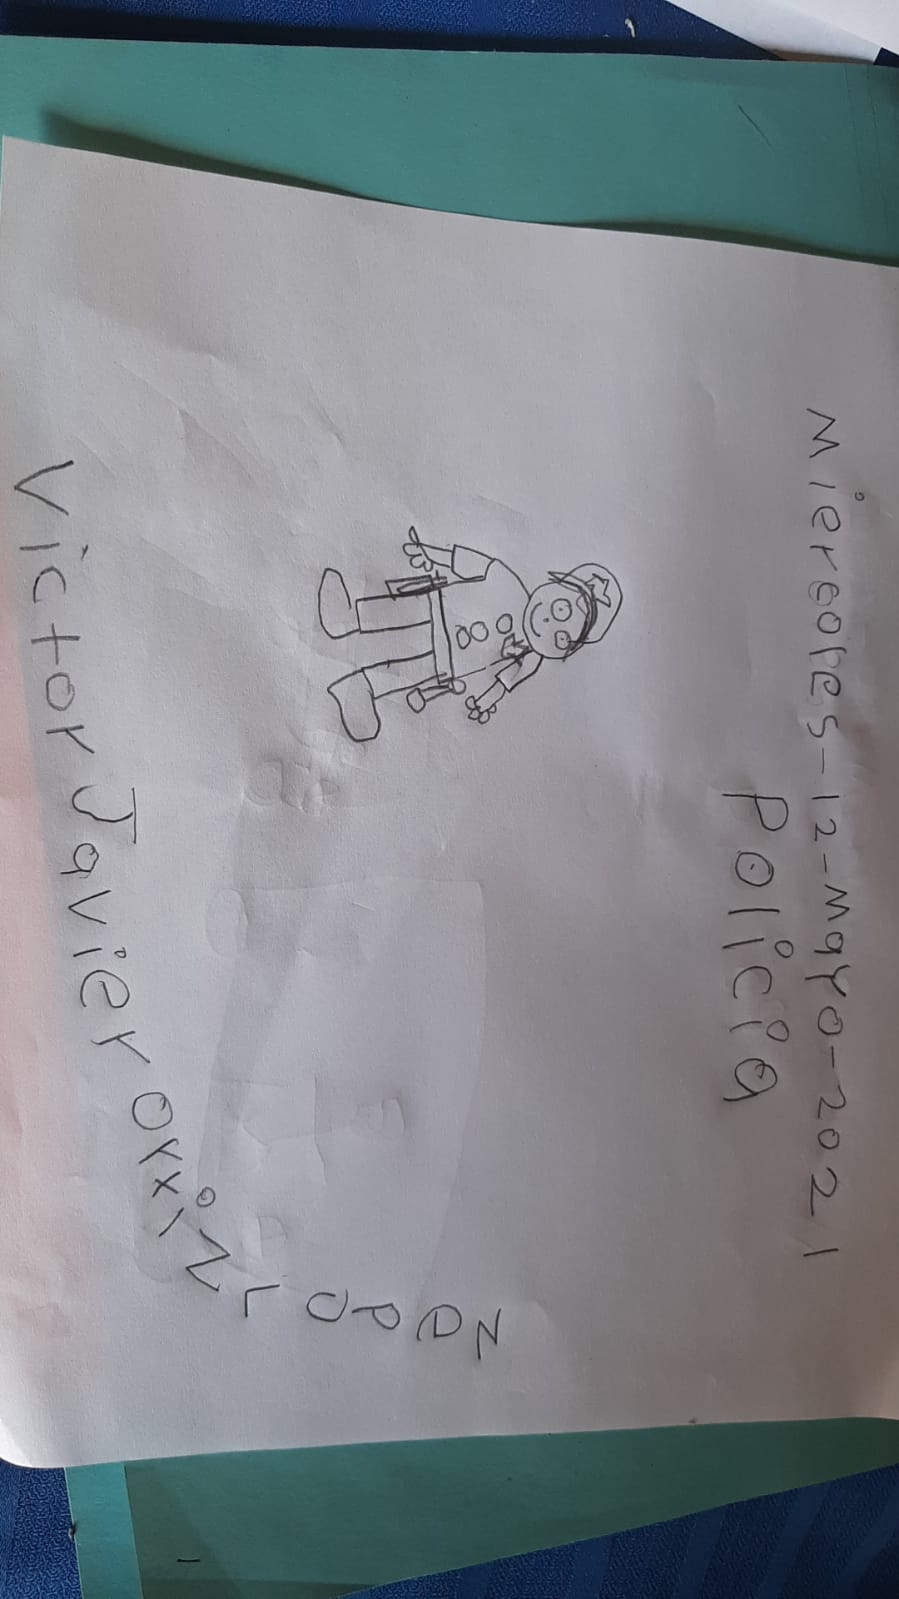 Miercoles-12-Mayo-2021
Policia
Victor Javier ortiz LOPeZ